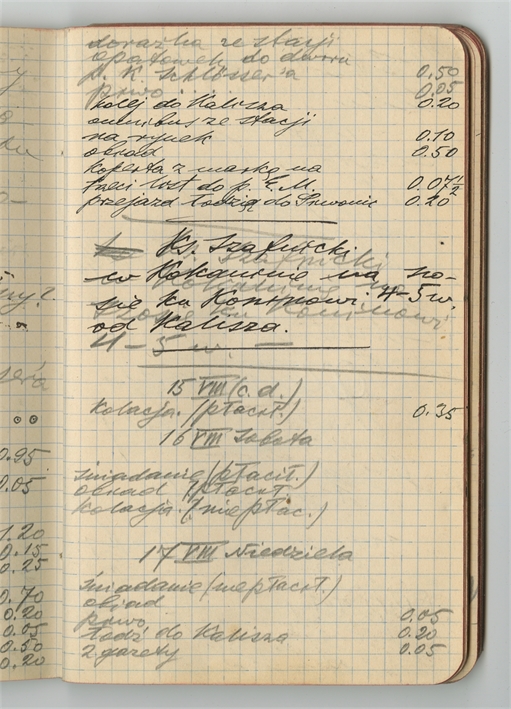 dorożka ze stacji
Opatówek do dworu
p. K. Schlösser'a 0.50
piwo . . . . 0.05
kolej do Kalisza 0.20
omnibus ze stacji
na rynek 0.10
obiad 0.50
koperta z marką na
list do p. E. M. 0.07½
przejazd łodzią do Piwonic 0.20
Ks. Szafnicki
w Kokaninie na
szosie ku Koninowi. 4-5 w.
od Kalisza.
4 - 5 w. —
15 VIII (c. d.)
Kolacja. (płacił.) 0.35
16 VIII Sobota
śniadanie (płacił.)
obiad (płacił
kolacja. (niepłac.)
17 VIII Niedziela
śniadanie (niepłacił.)
obiad
piwo 0.05
łódź do Kalisza 0.20
2 gazety 0.05
0.95
0.05
1.20
0.15
0.25
0.70
0.20
0.05
0.50
0.20